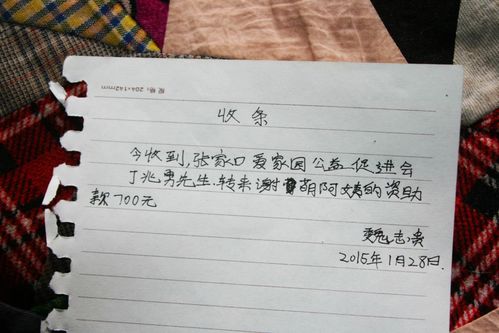 规格：204×142mm
收条
今收到,张家口爱家园公益促进会
丁兆勇先生,转来谢萌阿姨的资助
款700元
魏志
2015年1月28日.